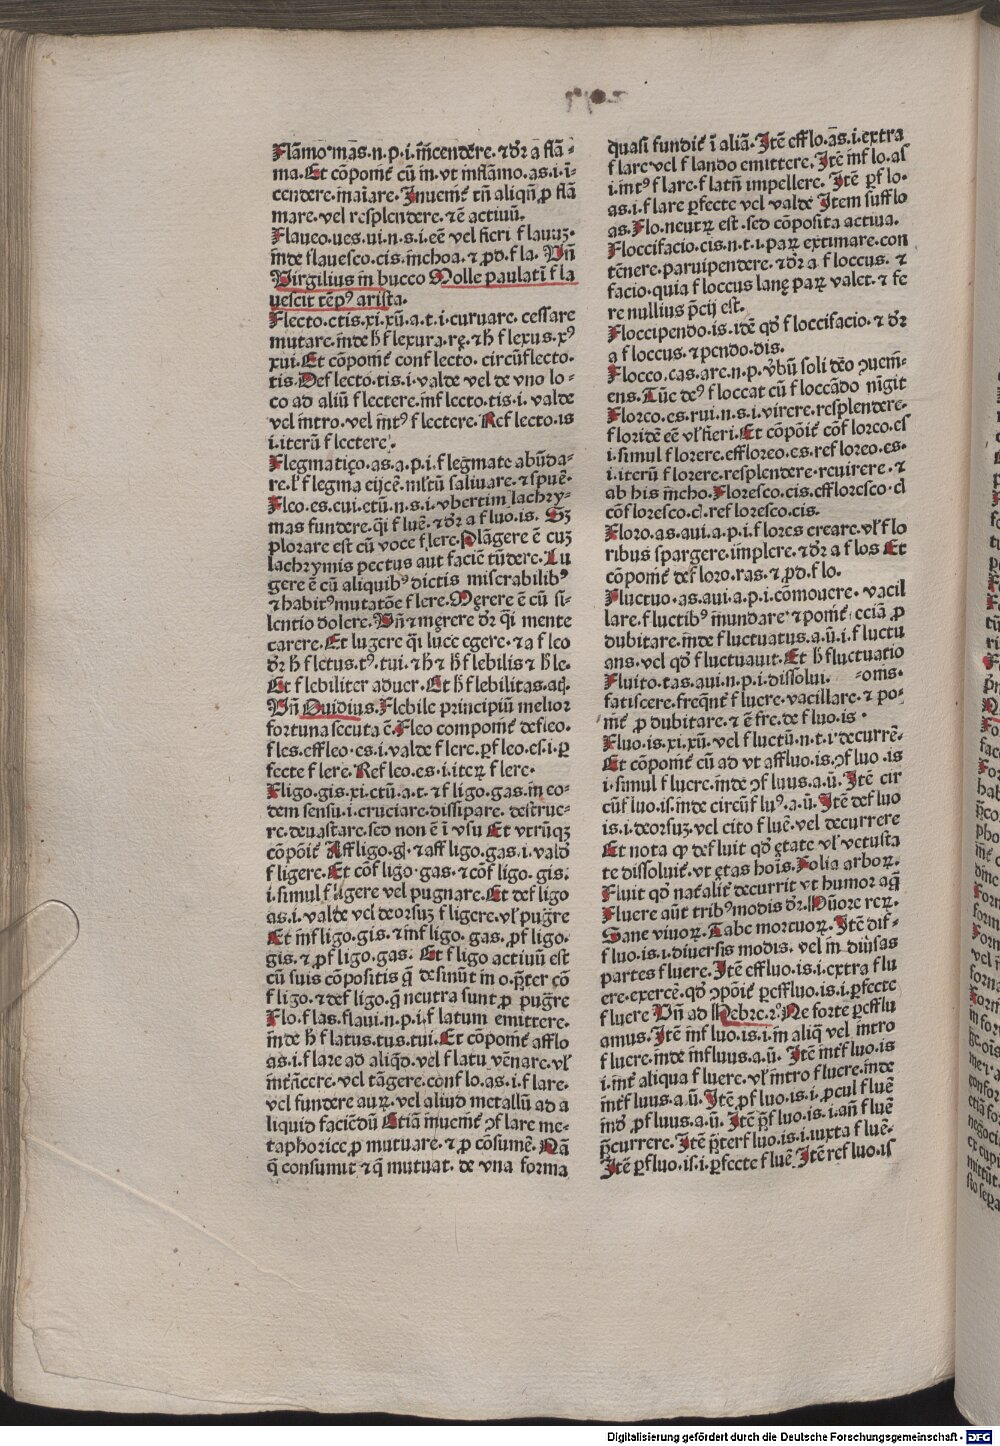 Flāmo mas.n.p.i.incendere.⁊ dr̄ a flā-
ma. Et cōponit̄ cū in. vt inflāmo.as.i.i-
cendere.inaiare. Inuenit̄ tn̄ aliqn̄ ꝓ flā
mare.vel resplendere.⁊ ē actiuū.
Flaueo.ues.ui.n.s.i.eē vel fieri flauuꝫ.
inde flauesco.cis.inchoa.⁊ ꝓd.fla. Vn̄
Virgilius in bucco Molle paulati fla
uescit tēpꝰ arista.
Flecto.ctis.xi.xū.a.t.i.curuare. cessare
mutare.inde h̄ flexura.rę.⁊ h̄ flexus.xꝰ
xui. Et cōponit̄ conflecto. circūflecto.
tis. Deflecto.tis.i.valde vel de vno lo-
co ad aliū flectere.inflecto.tis.i. valde
vel intro.vel intꝰ flectere. Reflecto.is
i.iterū flectere.
Flegmatiço.as.a.p.i.flegmate abūda-
re.l' flegma eijcē.mltū saliuare.⁊ spuē.
Fleo.es.eui.etū.n.s.i.vbertim lachry-
mas fundere.q̇i fluē.⁊ dr̄ a fluo.is. Sꝫ
plorare est cū voce flere. Plāgere ē cuꝫ
lachrymis pectus aut faciē tūdere. Lu
gere ē cū aliquibꝰ dictis miserabilibꝰ
⁊ habitꝰ mutatōe flere. Męrere ē cū si-
lentio dolere. Vn̄ ⁊ męrere dr̄ q̇i mente
carere. Et lugere q̇i luce egere.⁊ a fleo
dr̄ h̄ fletus.tꝰ.tui.⁊ h̄ ⁊ h̄ flebilis ⁊ h̄ le.
Et flebiliter aduer. Et h̄ flebilitas.aꝫ.
Vn̄ Ouidius. Flebile principiū melior
fortuna secuta ē. Fleo componit̄ defleo.
fles.effleo.es.i.valde flere.ꝑfleo.es.i.ꝑ
fecte flere. Refleo.es.i.iteꝝ flere.
Fligo.gis.xi.ctū.a.t.⁊ fligo.gas.in eo-
dem sensu.i.cruciare.dissipare. destrue-
re.deuastare.sed non ē i vsu Et vtrūqꝫ
cōpōit̄ Affligo.gꝭ.⁊ affligo.gas.i.valde
fligere. Et cōfligo gas.⁊ cōfligo. gis.
i.simul fligere vel pugnare. Et defligo
as.i.valde vel deorsuꝫ fligere.vl' pugre
Et infligo.gis.⁊ infligo. gas.ꝓfligo.
gis.⁊ ꝓfligo.gas. Et fligo actiuū est
cū suis cōpositis q̄ desinūt in o.p̄ter cō
fligo.⁊ defligo.q̄ neutra sunt ꝓ pugre
Flo.flas.flaui.n.p.i.flatum emittere.
inde h̄ flatus.tus.tui. Et cōponit̄ afflo
as.i.flare ad aliqd̄.vel flatu vēnare.vl'
incācere.vel tāgere.conflo.as.i.flare.
vel fundere auꝝ.vel aliud metallū ad a
liquid faciēdū Etiā inuenit̄ ꝯflare me-
taphorice ꝓ mutuare.⁊ ꝓ cōsumē. Nā
q̄ consumit ⁊ q̄ mutuat. de vna forma
quasi fundit̄ i aliā. Itē efflo.as.i.extra
flare vel flando emittere. Itē inflo.as
i.intꝰ flare.flatū impellere. Itē ꝑflo.
as.i.flare ꝑfecte vel valde Item sufflo
as. Flo.neutꝝ est.sed cōposita actiua.
Floccifacio.cis.n.t.i.paꝝ extimare.con
tēnere.paruipendere.⁊ dr̄ a floccus. ⁊
facio.quia floccus lanę paꝝ valet.⁊ fe
re nullius p̄cij est.
Floccipendo.is.idē qd̄ floccifacio.⁊ dr̄
a floccus.⁊ pendo.dis.
Flocco.cas.are.n.p. v̄bū soli deo ꝯueni-
ens. Tūc deꝰ floccat cū floccādo nigit
Floreo.es.rui.n.s.i.virere.resplendere.
floridē eē vl' fieri. Et cōpōit̄ cōfloreo.es
i.simul florere.effloreo.es.refloreo.es.
i.iterū florere.resplendere.reuirere.⁊
ab his incho. Floresco.cis.effloresco.cꝭ
cōfloresco.cꝭ.refloresco.cis.
Floro.as.aui.a.p.i.flores creare.vl' flo
ribus spargere.implere.⁊ dr̄ a flos Et
cōponit̄ defloro.ras.⁊ ꝓd.flo.
Fluctuo.as.aui.a.p.i.cōmouere. vacil
lare.fluctibꝰ inundare ⁊ ponit̄ eciā ꝓ
dubitare.inde fluctuatus.a.ū.i.fluctu
ans.vel qd̄ fluctuauit. Et h̄ fluctuatio
Fluito.tas.aui.n.p.i.dissolui. -onis.
fatiscere.freqn̄t̄ fluere.vacillare.⁊ po-
nit̄ ꝓ dubitare.⁊ ē fre.de fluo.is.
Fluo.is.xi.xū.vel fluctū.n.t.i.decurrē.
Et cōponit̄ cū ad vt affluo.is.ꝯfluo.is
i.simul fluere.inde ꝯfluus.a.ū. Itē cir
cūfluo.is.inde circūfluꝰ.a.ū. Itē defluo
is.i.deorsuꝫ.vel cito fluē.vel decurrere
Et nota ꝙ defluit qd̄ ętate vl' vetusta
te dissoluit̄.vt ętas hois. Folia arboꝝ.
Fluit qd̄ nat̄alit̄ decurrit vt humor aq̄
Fluere aūt tribꝰ modis dr̄. Mūore reꝝ.
Sane viuoꝝ. Tabe mortuoꝝ. Itē dif-
fluo.is.i.diuersis modis. vel in diūsas
partes fluere. Itē effluo.is.i.extra flu
ere.exercē.qd̄ ꝯpōit̄ ꝑeffluo.is.i.ꝑfecte
fluere Vn̄ ad Hebre.2ͦ. Ne forte ꝑefflu
amus. Itē influo.is.i.in aliq̄ vel intro
fluere.inde influus.a.ū. Itē int̄fluo.is
i.int̄ aliqua fluere.vl' intro fluere.inde
int̄fluus.a.ū. Itē ꝓfluo.is.i.ꝓcul fluē
inde ꝓfluus.a.ū. Itē p̄fluo.is.i.an̄ fluē
p̄currere. Itē p̄terfluo.is.i.iuxta fluē.
Itē ꝑfluo.is.i.ꝑfecte fluē Itē refluo.is
Digitalisierung gefördert durch die Deutsche Forschungsgemeinschaft - DFG